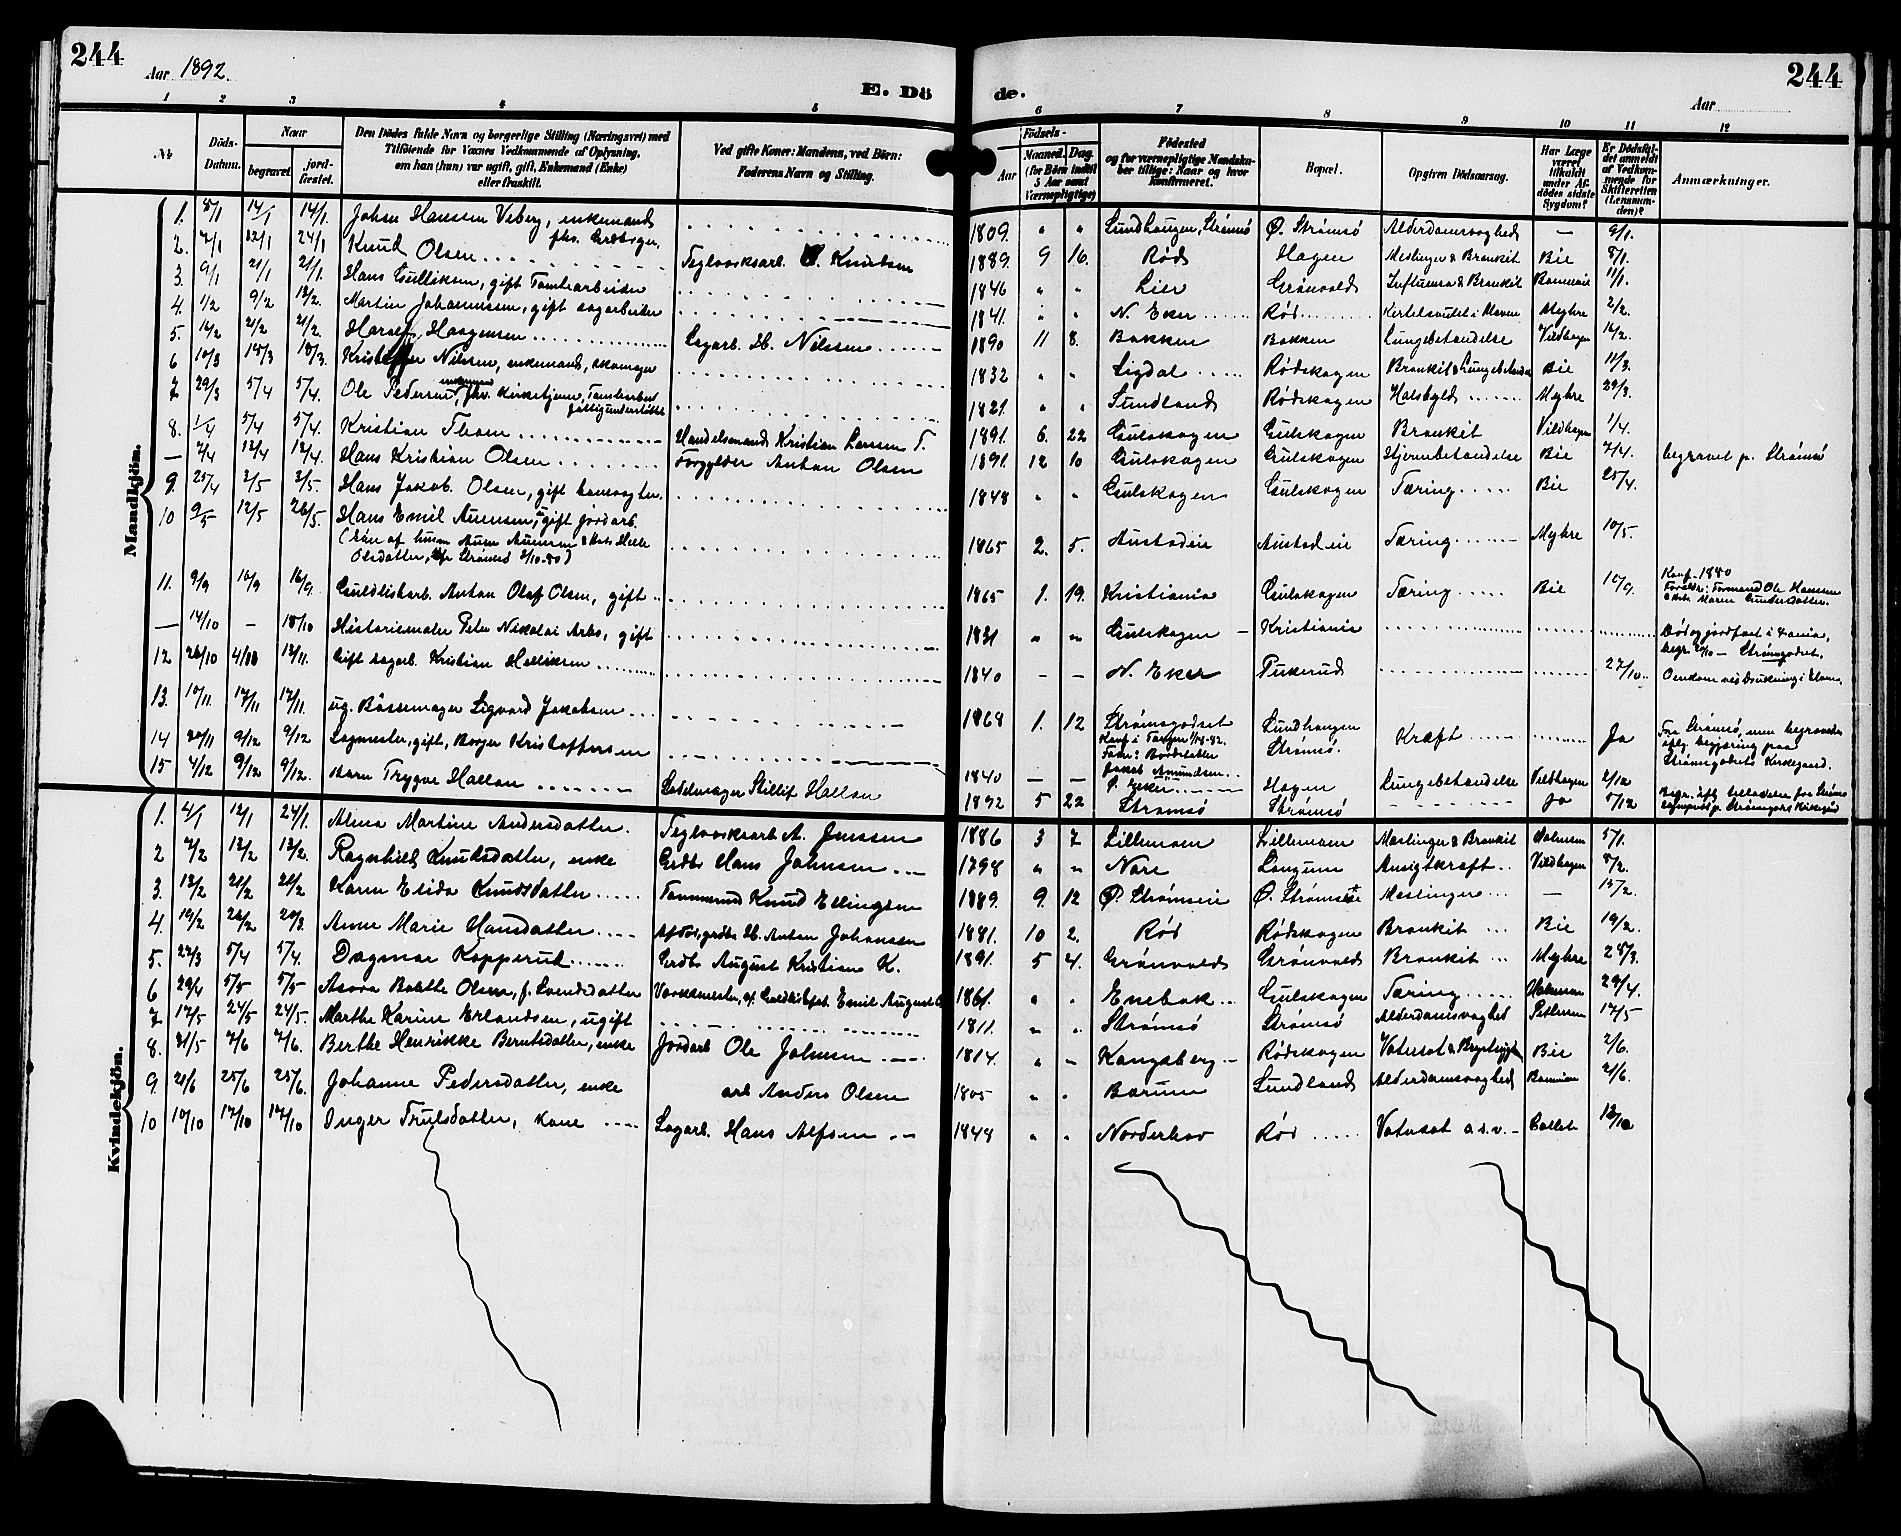 244
Aar 1892.
E. Dö
de.
Aar
244
1 2 3 4 5 6 7 8 9 10 11 12
No
Döds-Datum.
Naar
begravet
jord-fæstet.
Den Dödes fulde Navn og borgerlige Stilling (Næringsvei) med
Tilföiende for Voxnes Vedkommende af Oplysning,
om han (hun) var ugift, gift, Enkemand (Enke)
eller fraskilt.
Ved gifte Koner: Mandens, ved Börn:
Faderens Navn og Stilling.
Födsels-
Aar
Maaned. Dag.
(for Børn indtil
5 Aar samt
Værnepligtige)
Födested
og for værnepligtige Mandska-
ber tillige: Naar og hvor
konfirmeret.
Bopæl.
Opgiven Dödsaarsag.
Har Læge
været
tilkaldt
under Af-
dödes sidste
Sygdom?
Er Dödsfal-
det anmeldt
af Vedkom-
mende for
Skifteretten
(Lensman-
den)?
Anmærkninger.
Mandkjön.
1. 5/1 14/1 14/1. Johan Hanssen Viberg, enkemand, fhv. Grdbrger. 1809. " " Sundhaugen, Strømsö Ø. Strømsö Alderdomssvaghed — 9/1.
2. 7/1 12/1 24/1 Knud Olsen Teglværksarb. O. Knudsen 1889. 9 16. Rød Hagen Meslinger & Bronkit Bie 8/1.
3. 9/1 21/1 21/1. Hans Gulliksen, gift Tomtearbeider 1846 " " Lier Grønvold Influensa & Bronkit 11/1.
4. 1/2 9/2 12/2. Martin Johannessen, gift sagarbeider 1841. " " N. Eker Rød Kirtelsvulst i Maven Myhre 2/2.
5. 14/2 21/2 21/2. Haagensen Sagarb. H. Nilssen 1890 11 8. Bakken Bakken Lungebetændelse Vildhagen 14/2.
6 10/3 18/3 18/3. Kristoffer Nilsen, enkemand, skomager 1832 " " Sigdal Rødskogen Bronkit & Lungebetændelse Bie 11/3.
7 29/3 5/4 5/4. Ole Pedersen, enkemand, fhv. Kirketjener, Tomtearbeid fattigunderstøttet 1821. " " Sundland Rødskogen Halsbyld Myhre 29/3.
8. 1/4 5/4 5/4. Kristian Thom Handelsmand Kristian Larsen T. 1891. 6. 22 Gulskogen Gulskogen Bronkit Vildhagen 1/4.
— 7/4 12/4 12/4. Hans Kristian Olsen Forgylder Anton Olsen 1891. 12 10 Gulskogen Gulskogen Hjernebetændelse Bie 7/4. begravet p. Strømsö
9. 25/4 3/5 3/5. Hans Jakob Olsen, gift banevogter 1848 " " Gulskogen Gulskogen Tæring Bie 25/4.
10 9/5 12/5 26/5. Hans Emil Aunensen, gift jordarb. 1865 2. 5. Austadeie Austadeie Tæring Myhre 10/5.
11. 9/9 16/9 16/9. Guldlistarb. Anton Olaf Olsen, gift 1865 1. 19. Kristiania Gulskogen Tæring Bie 10/9. Konf. 1880 Forældre: Formand Ole Hansen & Maren Gundersdatter.
— 14/10 – 18/10 Historiemaler Peter Nikolai Arbo, gift 1831 " " Gulskogen – Kristiania Död og jordfæst i Xania, begr. – Strømsgodset.
12 26/10 4/11 13/11. Gift sagarb. Kristian Helliksen 1840 – – N. Eker Pukerud 27/10. Omkom ved Drukning i Elven.
13. 10/11 17/11 17/11. ug. Bössemager Sigvard Jakobsen 1868 1. 12 Strømsgodset Konf. i Tangen Fader: Jakob Amundsen Sundhaugen Strømsö. Kræft Ja Fra Strømsö, men begravedes efter begjæring paa Strømsgodsets Kirkegaard.
14 29/11 9/12 9/12 Sagmester, gift, Borger Kristoffersen 1840 — — Ø. Eker Hagen Lungebetændelse Vildhagen 2/12
15 4/12 9/12 9/12. Barn Trygve Hallan Sadelmager Hallan 1892 5 22 Strømsö Strømsö Ja 5/12
Kvindekjön.
1. 4/1 12/1 24/1. Alma Martine Andersdatter. Teglværksarb. A. Jenssen 1886 3 7 Lillemoen Lillemoen Meslinger & Bronkit Holmsen 5/1.
2 7/2 13/2 13/2. Ragnhild Knudsdatter, enke Grdbr. Hans Johnsen 1798 " " Nore Langum Ansigtkræft Vildhagen 8/2.
3. 13/2 21/2 21/2. Karen Elida Knudsdatter Tømmermd. Knud Ellingsen 1889. 9. 12 Ø. Strømseie Ø. Strømsö Meslinger — 15/2.
4. 19/2 26/2 20/3. Anne Marie Hansdatter H. Anton Johansen 1881. 10 2. Rød Rødskogen Bronkit Bie 19/2.
5. 27/3 5/4 5/4. Dagmar Kopperud Grdbr. August Kristian K. 1891. 5 4. Grønvold Grønvold Bronkit Myhre 28/3.
6 29/4 5/5 5/5 Asora Bolette Olsen, f. Svendsdatter Værkmester, Guldlistfat. Emil August 1861. " " Enebak Gulskogen Tæring Holmsen 29/4.
7 17/5 24/5 24/5. Marthe Karine Erlandsen, ugift 1811. " " Strømsö Strømsö Alderdomssvaghed Pettersen 17/5
8. 31/5 7/6 7/6. Berthe Henrikke Berntsdatter, enke Jordarb Ole Johnsen 1814. " – Kongsberg – Rødskogen Vatersot & Brystsygdom Bie 2/6.
9 21/6 25/6 25/6. Johanne Pedersdatter, enke arb Anders Olsen 1805 " " Bærum Sundland Alderdomssvaghed 21/6.
10 10/10 17/10 17/10 Inger Trulsdatter, kone Sagarb. Hans Alfsen 1848 " " Norderhov Rød Vatersot o.s.v. – 12/10